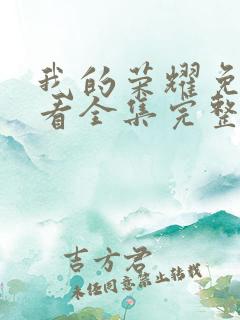 我的荣耀免
看全集完整
吉方君
未经同意禁止转载